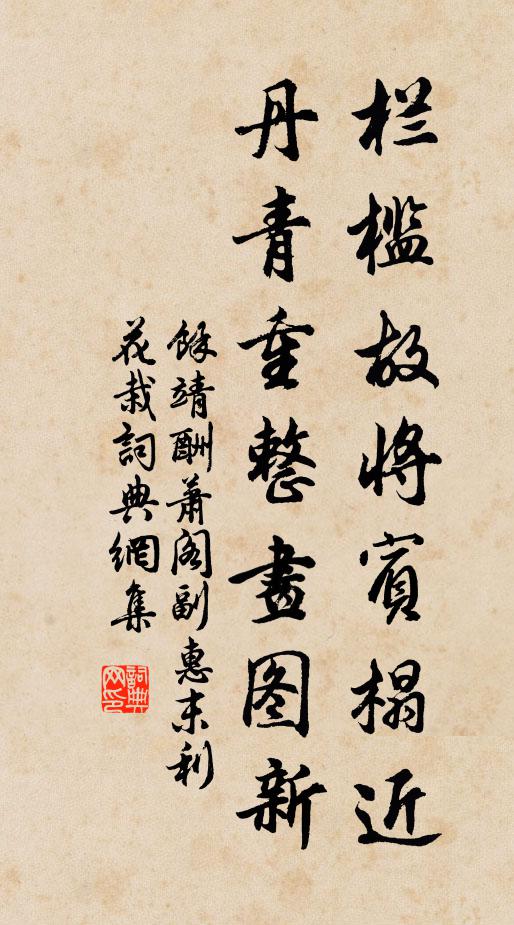 栏槛故将賓榻近
丹青重整畫图新
餘靖酬萧阁副惠末利
花栽詞典網集
詞典网印